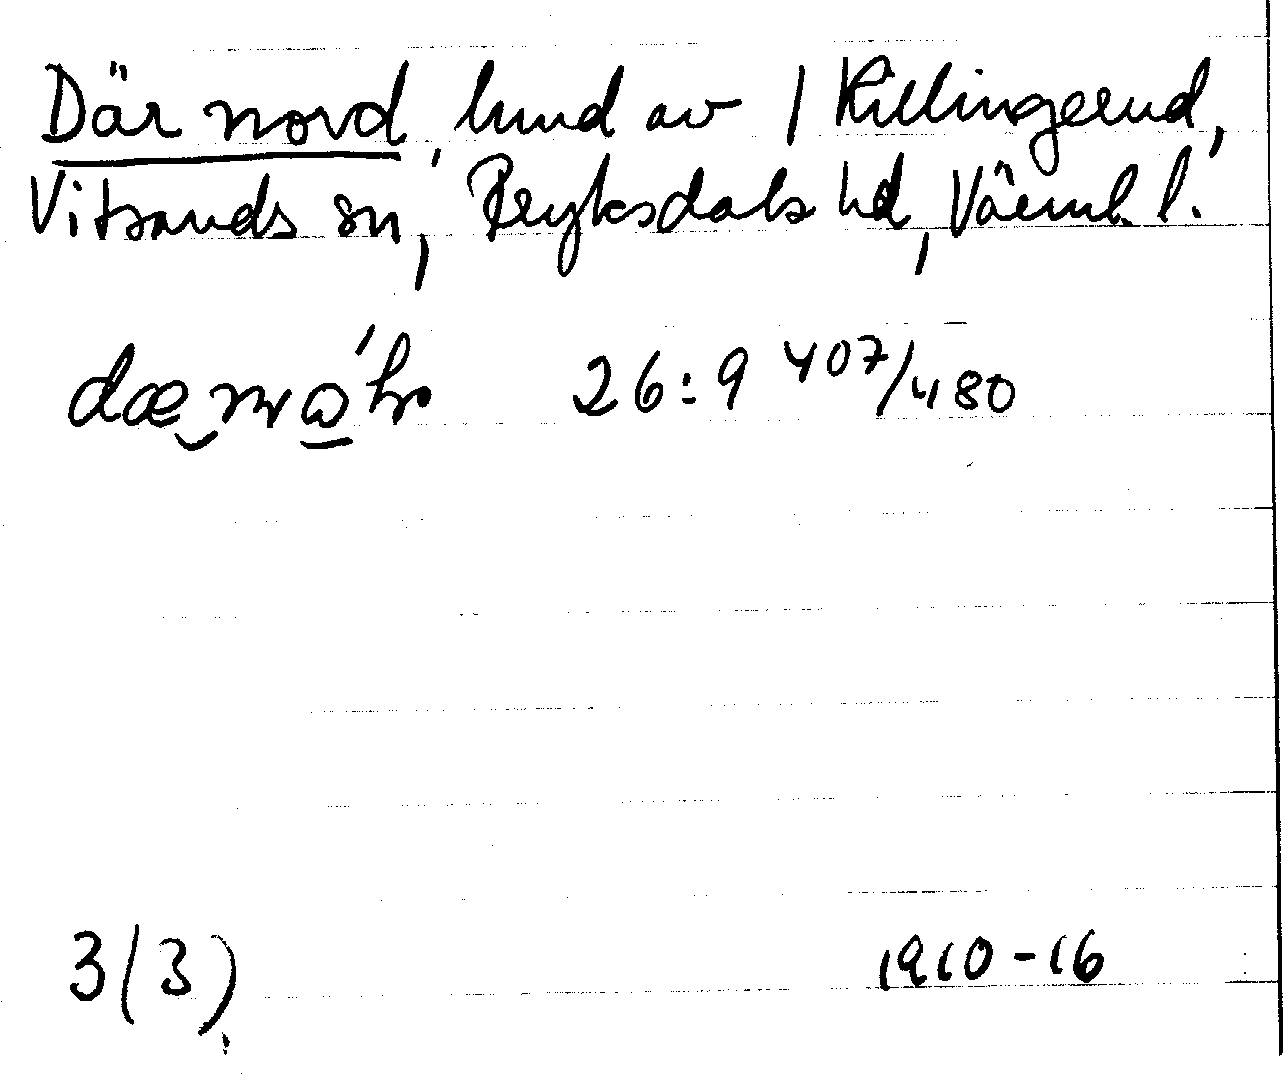 Där nord, lund av 1 Killingerud,
Vitsands sn, Fryksdals hd, Värml. l.
26:9 407/480
3(3) 1910-16